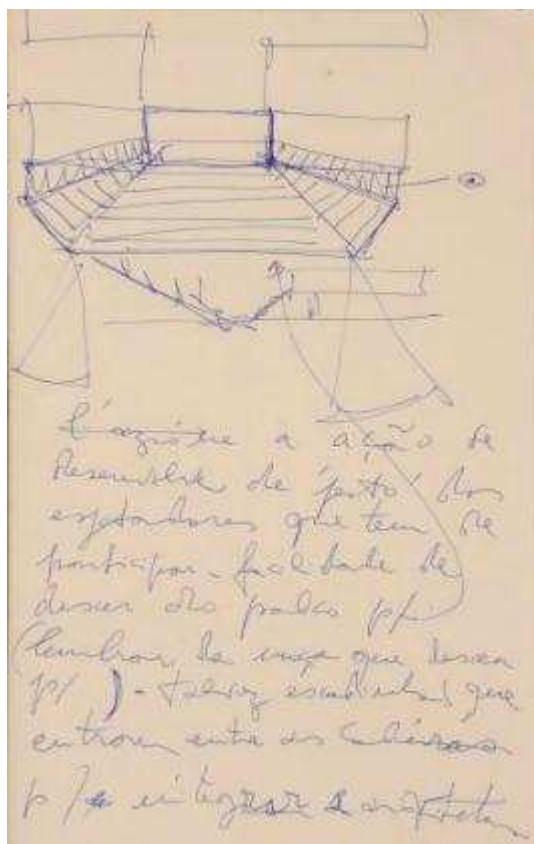 a ação se
desenvolve de 'perto' dos
espetadores que tem de
participar - facilidade de
descer dos palcos p/
(lembrar da moça que desceu
p/ ) - talvez escadinhas que
entrem entre as cadeiras
p/ integrar a arquitetura